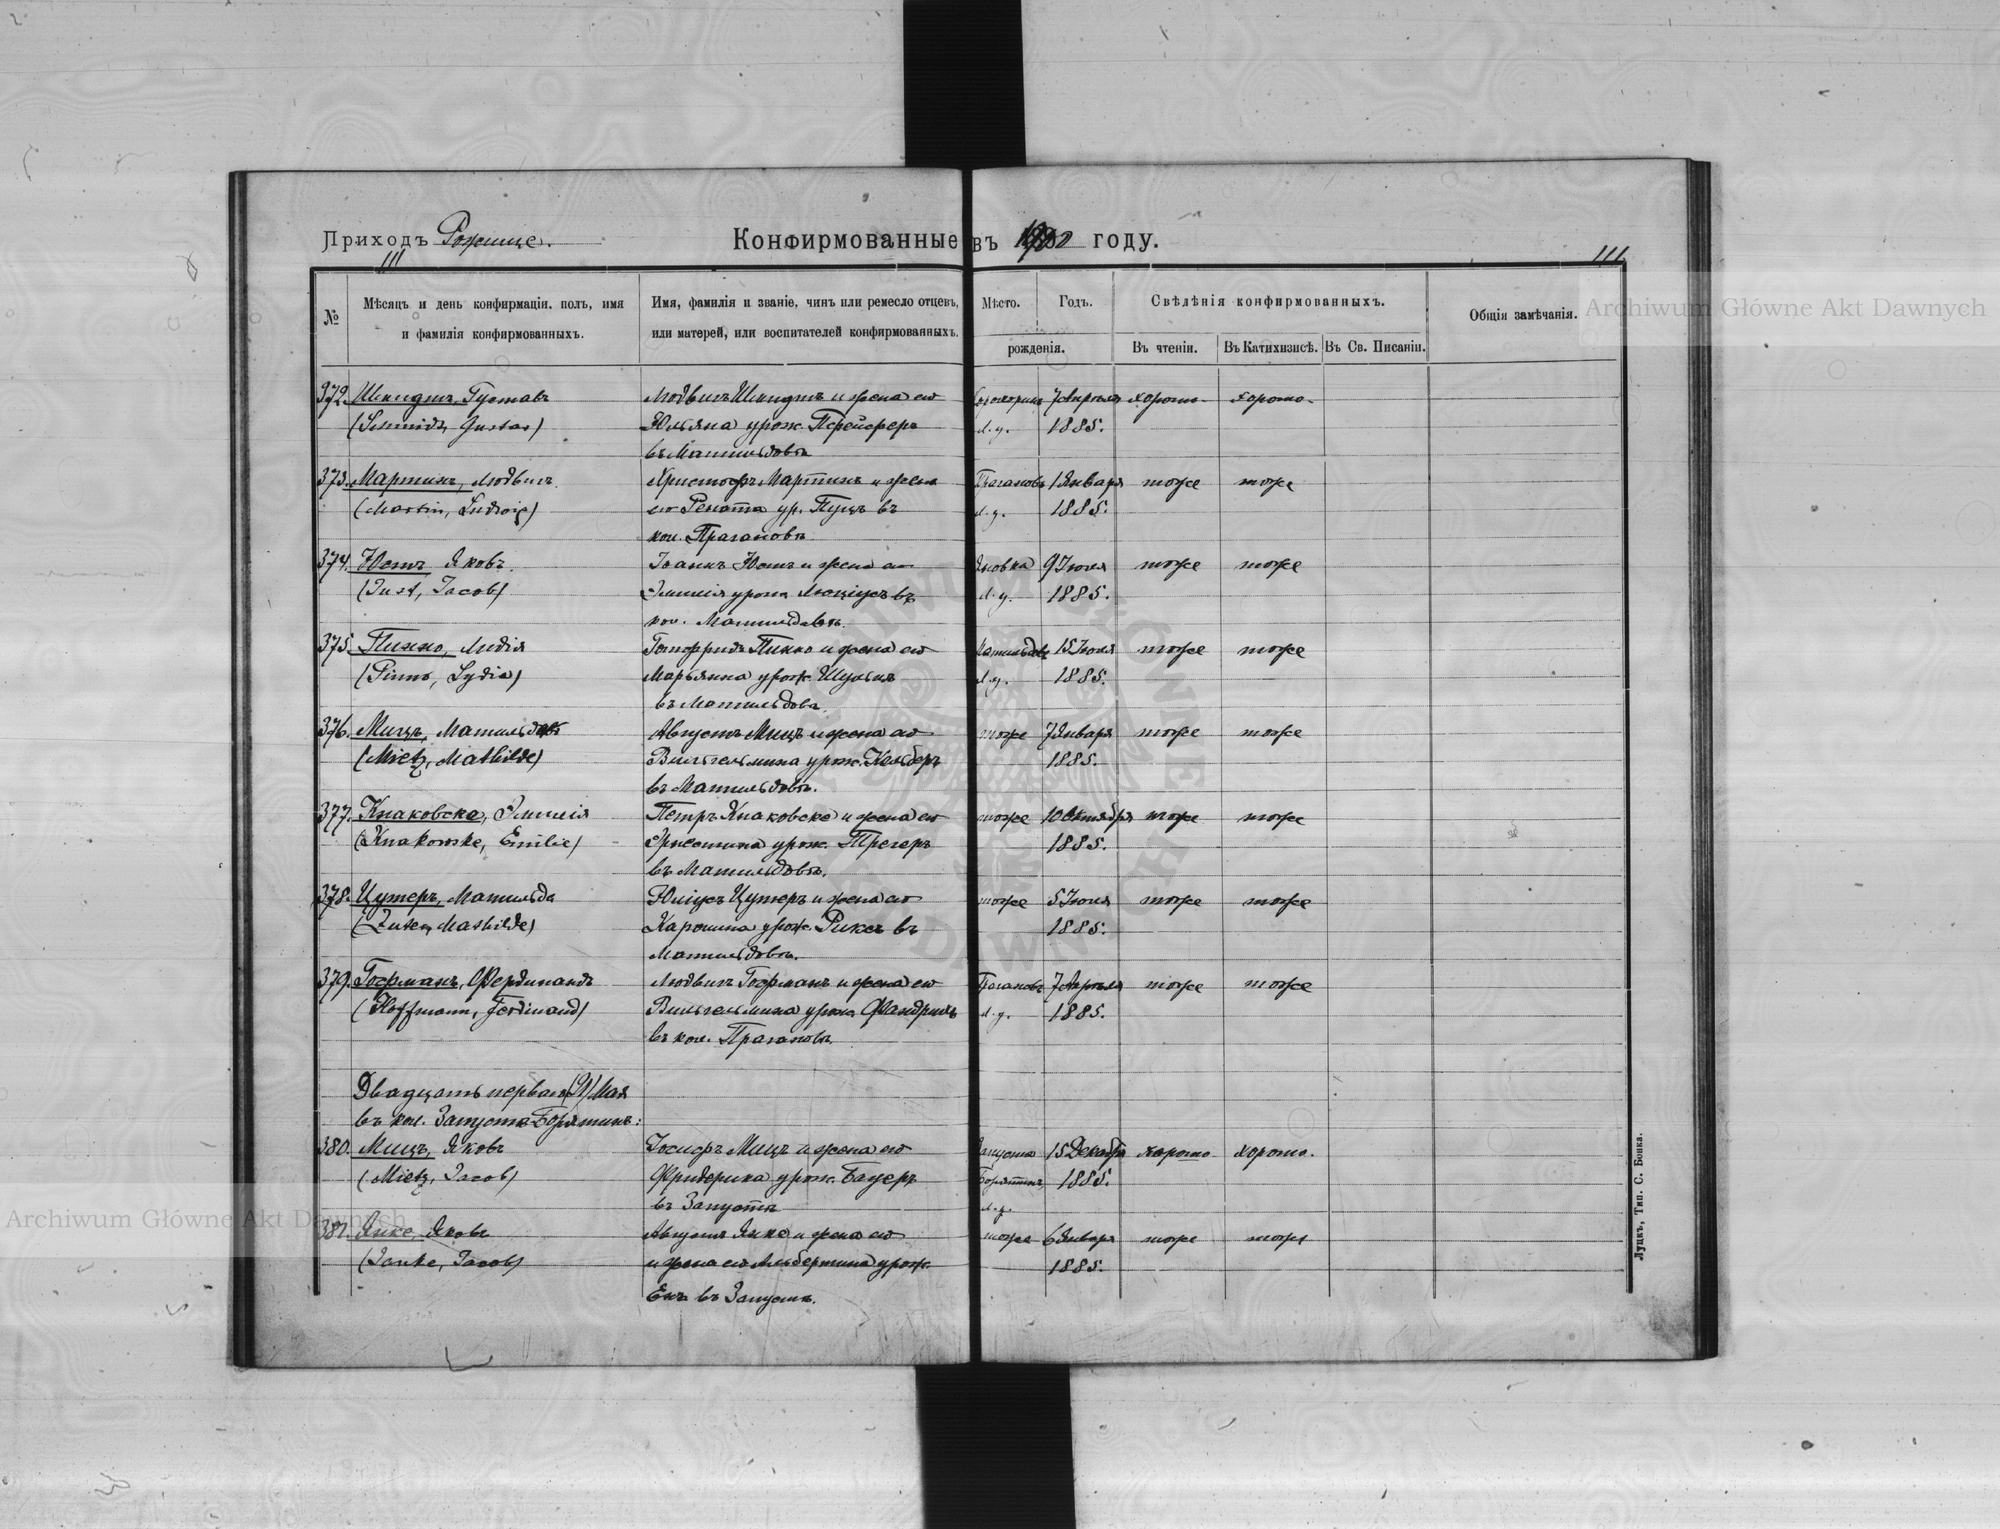 Приходъ Рожище.
Конфирмованные въ году.
111
111
№
Мѣсяцъ и день конфирмаціи, полъ, имя
и фамилія конфирмованныхъ.
Имя, фамилія и званіе, чинъ или ремесло отцевъ,
или матерей, или воспитателей конфирмованныхъ.
Мѣсто.
Годъ.
рожденія.
Свѣдѣнія конфирмованныхъ.
Въ чтеніи.
Въ Катихизисѣ.
Въ Св. Писаніи.
Общія замѣчанія.
Archiwum Główne Akt Dawnych
372. Шмидтъ, Густавъ Людвигъ Шмидтъ и жена его 7 Апрѣля хорошо. хорошо.
(Schmidt, Gustav) Юльяна урож. л.у. 1885.
въ Матильдовѣ
373. Мартинъ, Людвигъ. Христофъ Мартинъ и жена 1 Января тоже тоже
(Martin, Ludwig) его Рената ур. въ л.у. 1885.
кол. Прагановъ.
374. Юстъ, Яковъ. Іоаннъ Юстъ и жена его Яновка 9 Іюля тоже тоже
(Just, Jacob) Эмилія урож. въ л.у. 1885.
кол. Матильдовѣ.
375. Пинно, Лидія Готфридъ Пинно и жена его 15 Іюля тоже тоже
(Pinno, Lydia) Марьянна урож. л.у. 1885.
въ Матильдовѣ.
376. Мицъ, Матильда Августъ Мицъ и жена его тоже 7 Января тоже тоже
(Mietz, Mathilde) Вильгельмина урож. 1885.
въ Матильдовѣ.
377. Кнаковске, Эмилія Петръ Кнаковске и жена его тоже 10 Октября тоже тоже
(Knakowske, Emilie) Эрнестина урож. Трегеръ 1885.
въ Матильдовѣ.
378. Цутеръ, Матильда Юліусъ Цутеръ и жена его тоже 5 Іюля тоже тоже
(Zuter, Mathilde) Каролина урож. въ 1885.
Матильдовѣ.
379. Гофманъ, Фердинандъ Людвигъ Гофманъ и жена его 7 Апрѣля тоже тоже
(Hoffmann, Ferdinand) Вильгельмина урож. л.у. 1885.
въ кол. Прагановъ.
Двадцать перваго (21) Мая
въ кол. Запуста-Борятинъ:
380. Мицъ, Яковъ Іосифъ Мицъ и жена его Запуста 15 Декабр. хорошо хорошо.
(Mietz, Jacob) Фридерика урож. Бауеръ Борятинъ, 1885.
въ Запустѣ л.у.
381. Янке, Яковъ Августъ Янке и жена его тоже 6 Января тоже тоже
(Janke, Jacob) и жена его Альбертина урож. 1885.
въ Запустѣ.
Луцкъ, Тип. С. Бонка.
Archiwum Główne Akt Dawnych